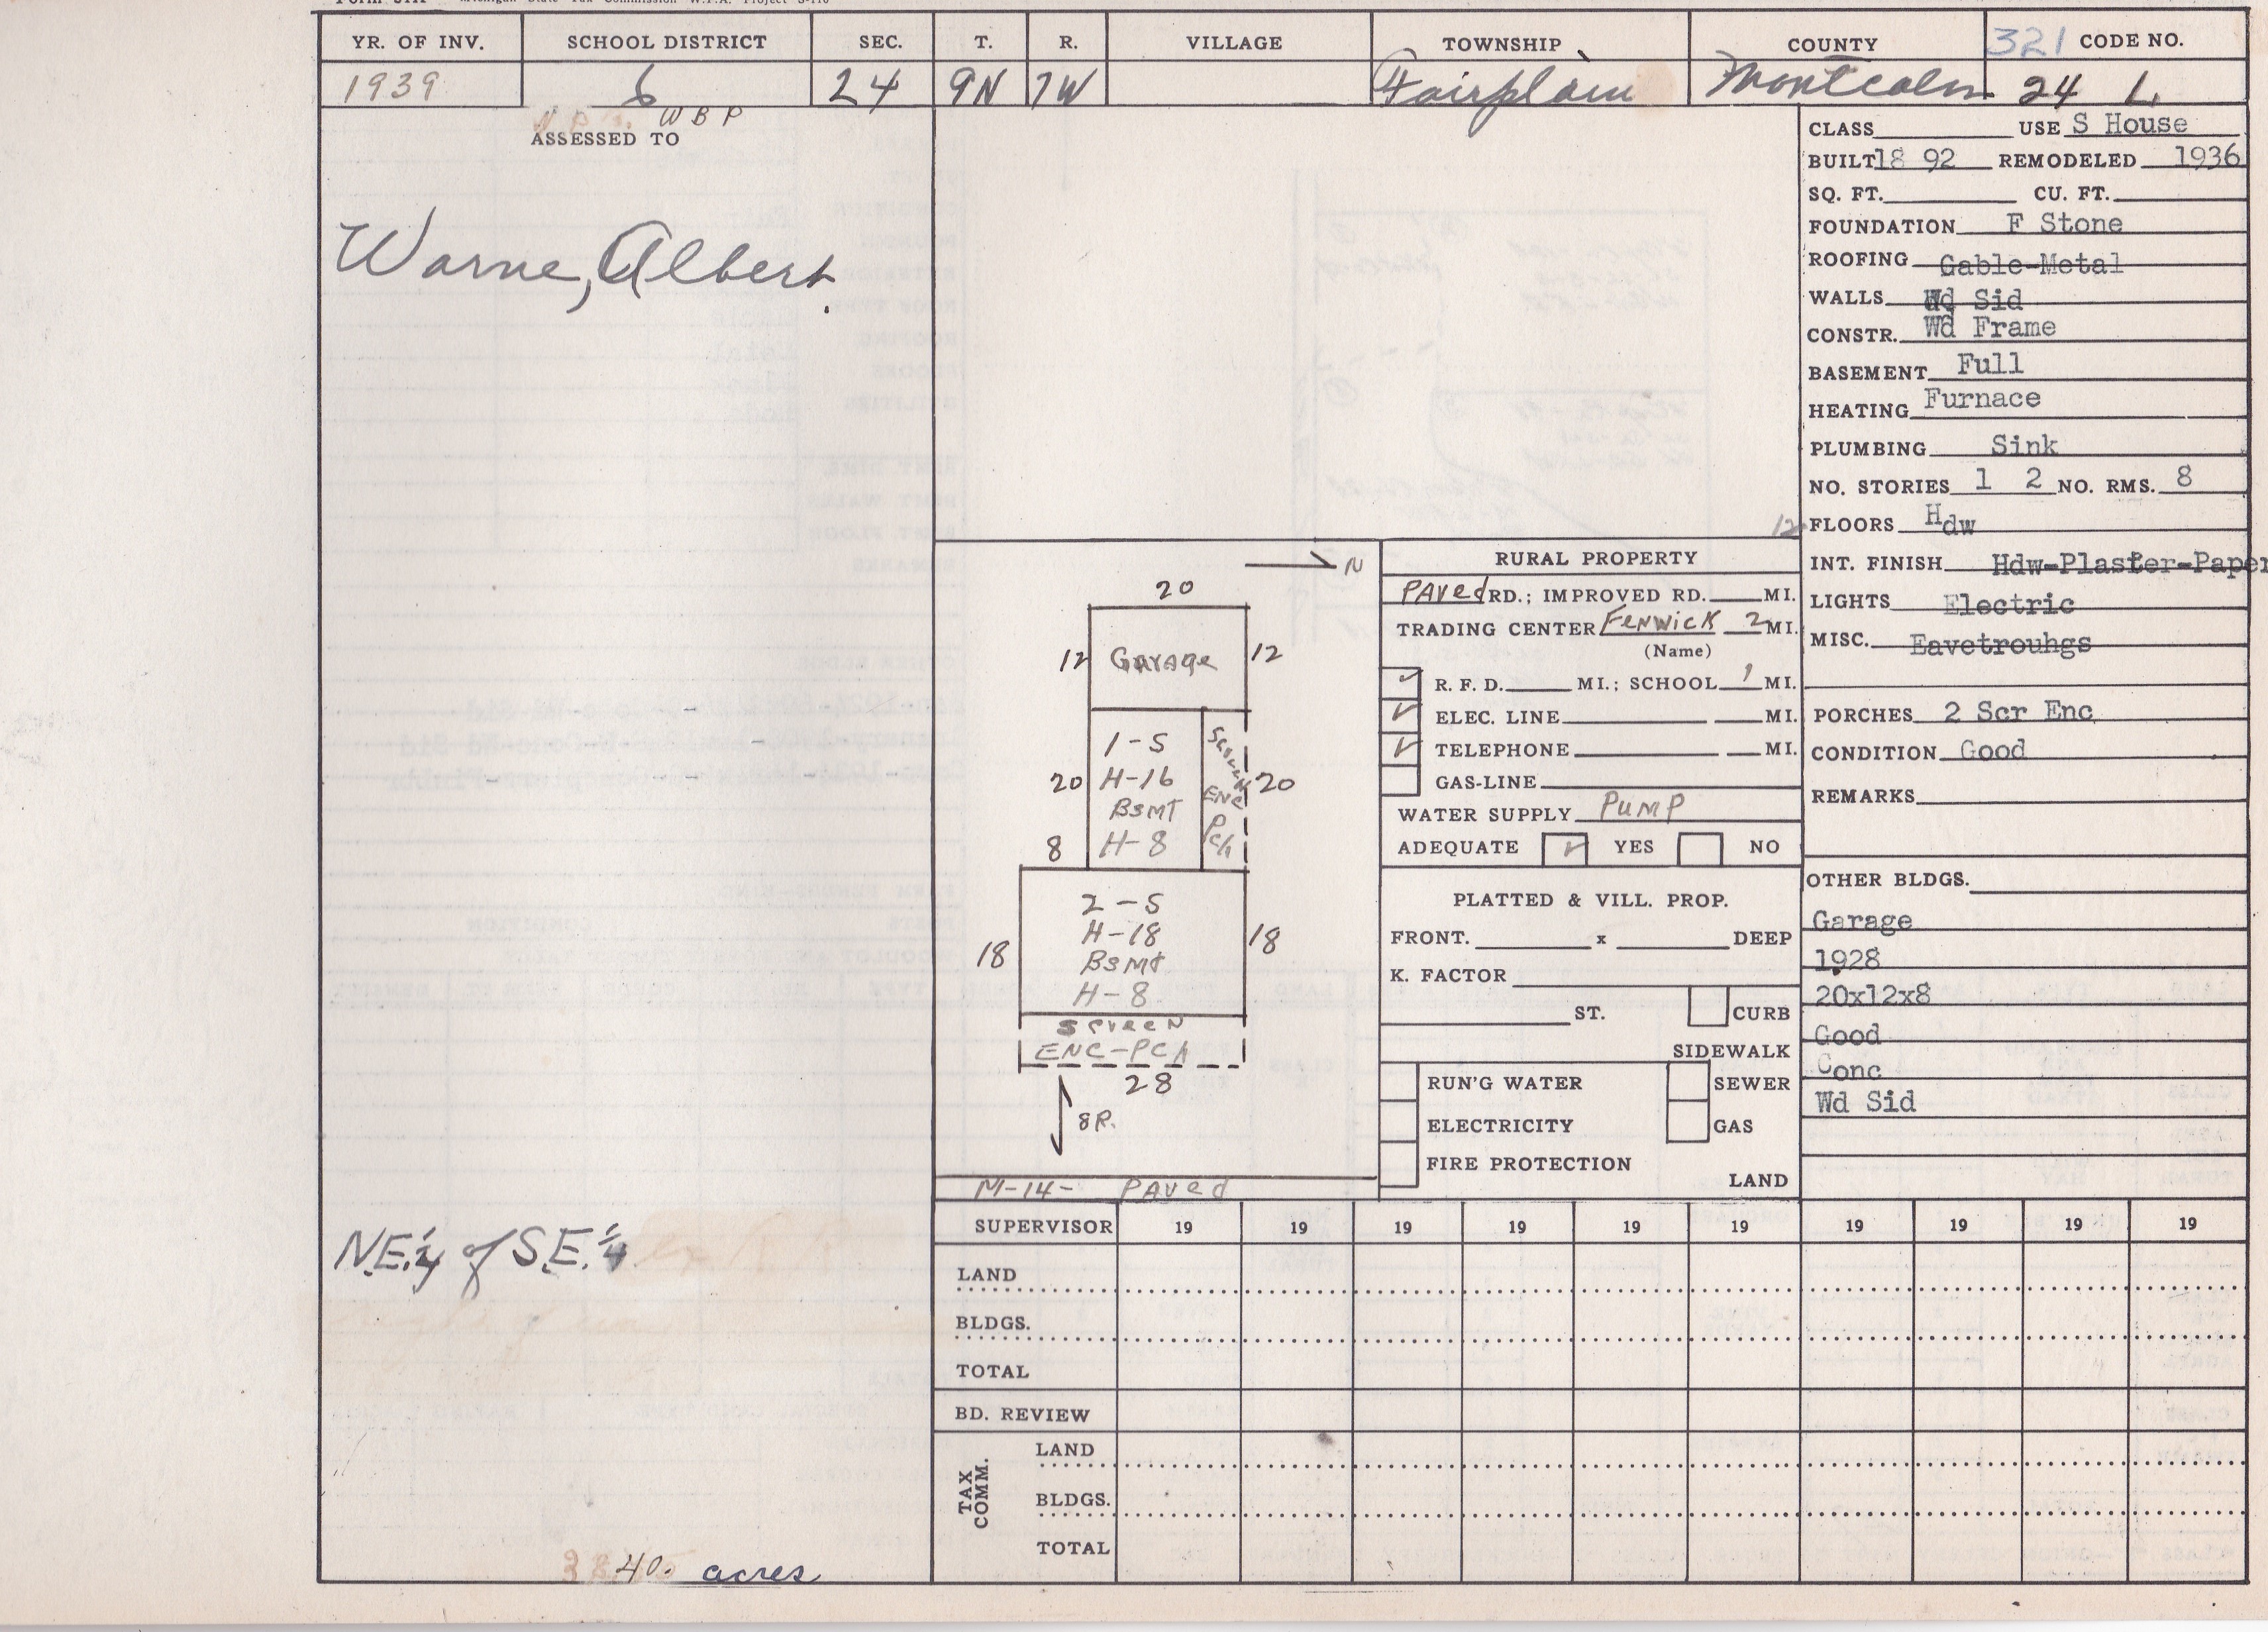 YR. OF INV. SCHOOL DISTRICT SEC. T. R. VILLAGE TOWNSHIP COUNTY 321 CODE NO.
1939 6 24 9N 7W Fairplain Montcalm 24 L
W B P
ASSESSED TO
Warne, Albert.
N.E.¼ of S.E.¼
40. acres
CLASS USE S House
BUILT 18 92 REMODELED 1936
SQ. FT. CU. FT.
FOUNDATION F Stone
ROOFING Gable-Metal
WALLS Wd Sid
CONSTR. Wd Frame
BASEMENT Full
HEATING Furnace
PLUMBING Sink
NO. STORIES 1 2 NO. RMS. 8
12 FLOORS Hdw
INT. FINISH Hdw-Plaster-Paper
LIGHTS Electric
MISC. Eavetrouhgs
PORCHES 2 Scr Enc
CONDITION Good
REMARKS
OTHER BLDGS.
Garage
1928
20x12x8
Good
Conc
Wd Sid
N
20
12 Garage 12
1-S
H-16
BSMT
H-8
20
SCREEN
ENC
PCH
20
8
2-S
H-18
BSMT
H-8
18
18
SCREEN
ENC-PCH
28
8R.
M-14- PAVED
RURAL PROPERTY
PAVED RD.; IMPROVED RD. MI.
TRADING CENTER FENWICK 2 MI.
(Name)
R. F. D. MI.; SCHOOL 1 MI.
ELEC. LINE MI.
TELEPHONE MI.
GAS-LINE
WATER SUPPLY PUMP
ADEQUATE YES NO
PLATTED & VILL. PROP.
FRONT. x DEEP
K. FACTOR
ST. CURB
SIDEWALK
RUN'G WATER SEWER
ELECTRICITY GAS
FIRE PROTECTION
LAND
SUPERVISOR 19 19 19 19 19 19 19 19 19 19
LAND
BLDGS.
TOTAL
BD. REVIEW
TAX COMM.
LAND
BLDGS.
TOTAL